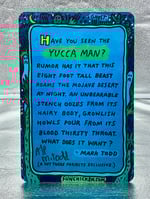 HAVE YOU SEEN THE
YUCCA MAN?
RUMOR HAS IT THAT THIS
EIGHT FOOT TALL BEAST
ROAMS THE MOJAVE DESERT
AT NIGHT. AN UNBEARABLE
STENCH OOZES FROM ITS
HAIRY BODY, GROWLING
HOWLS POUR FROM ITS
BLOOD THIRSTY THROAT.
WHAT DOES IT WANT?
- MARK TODD